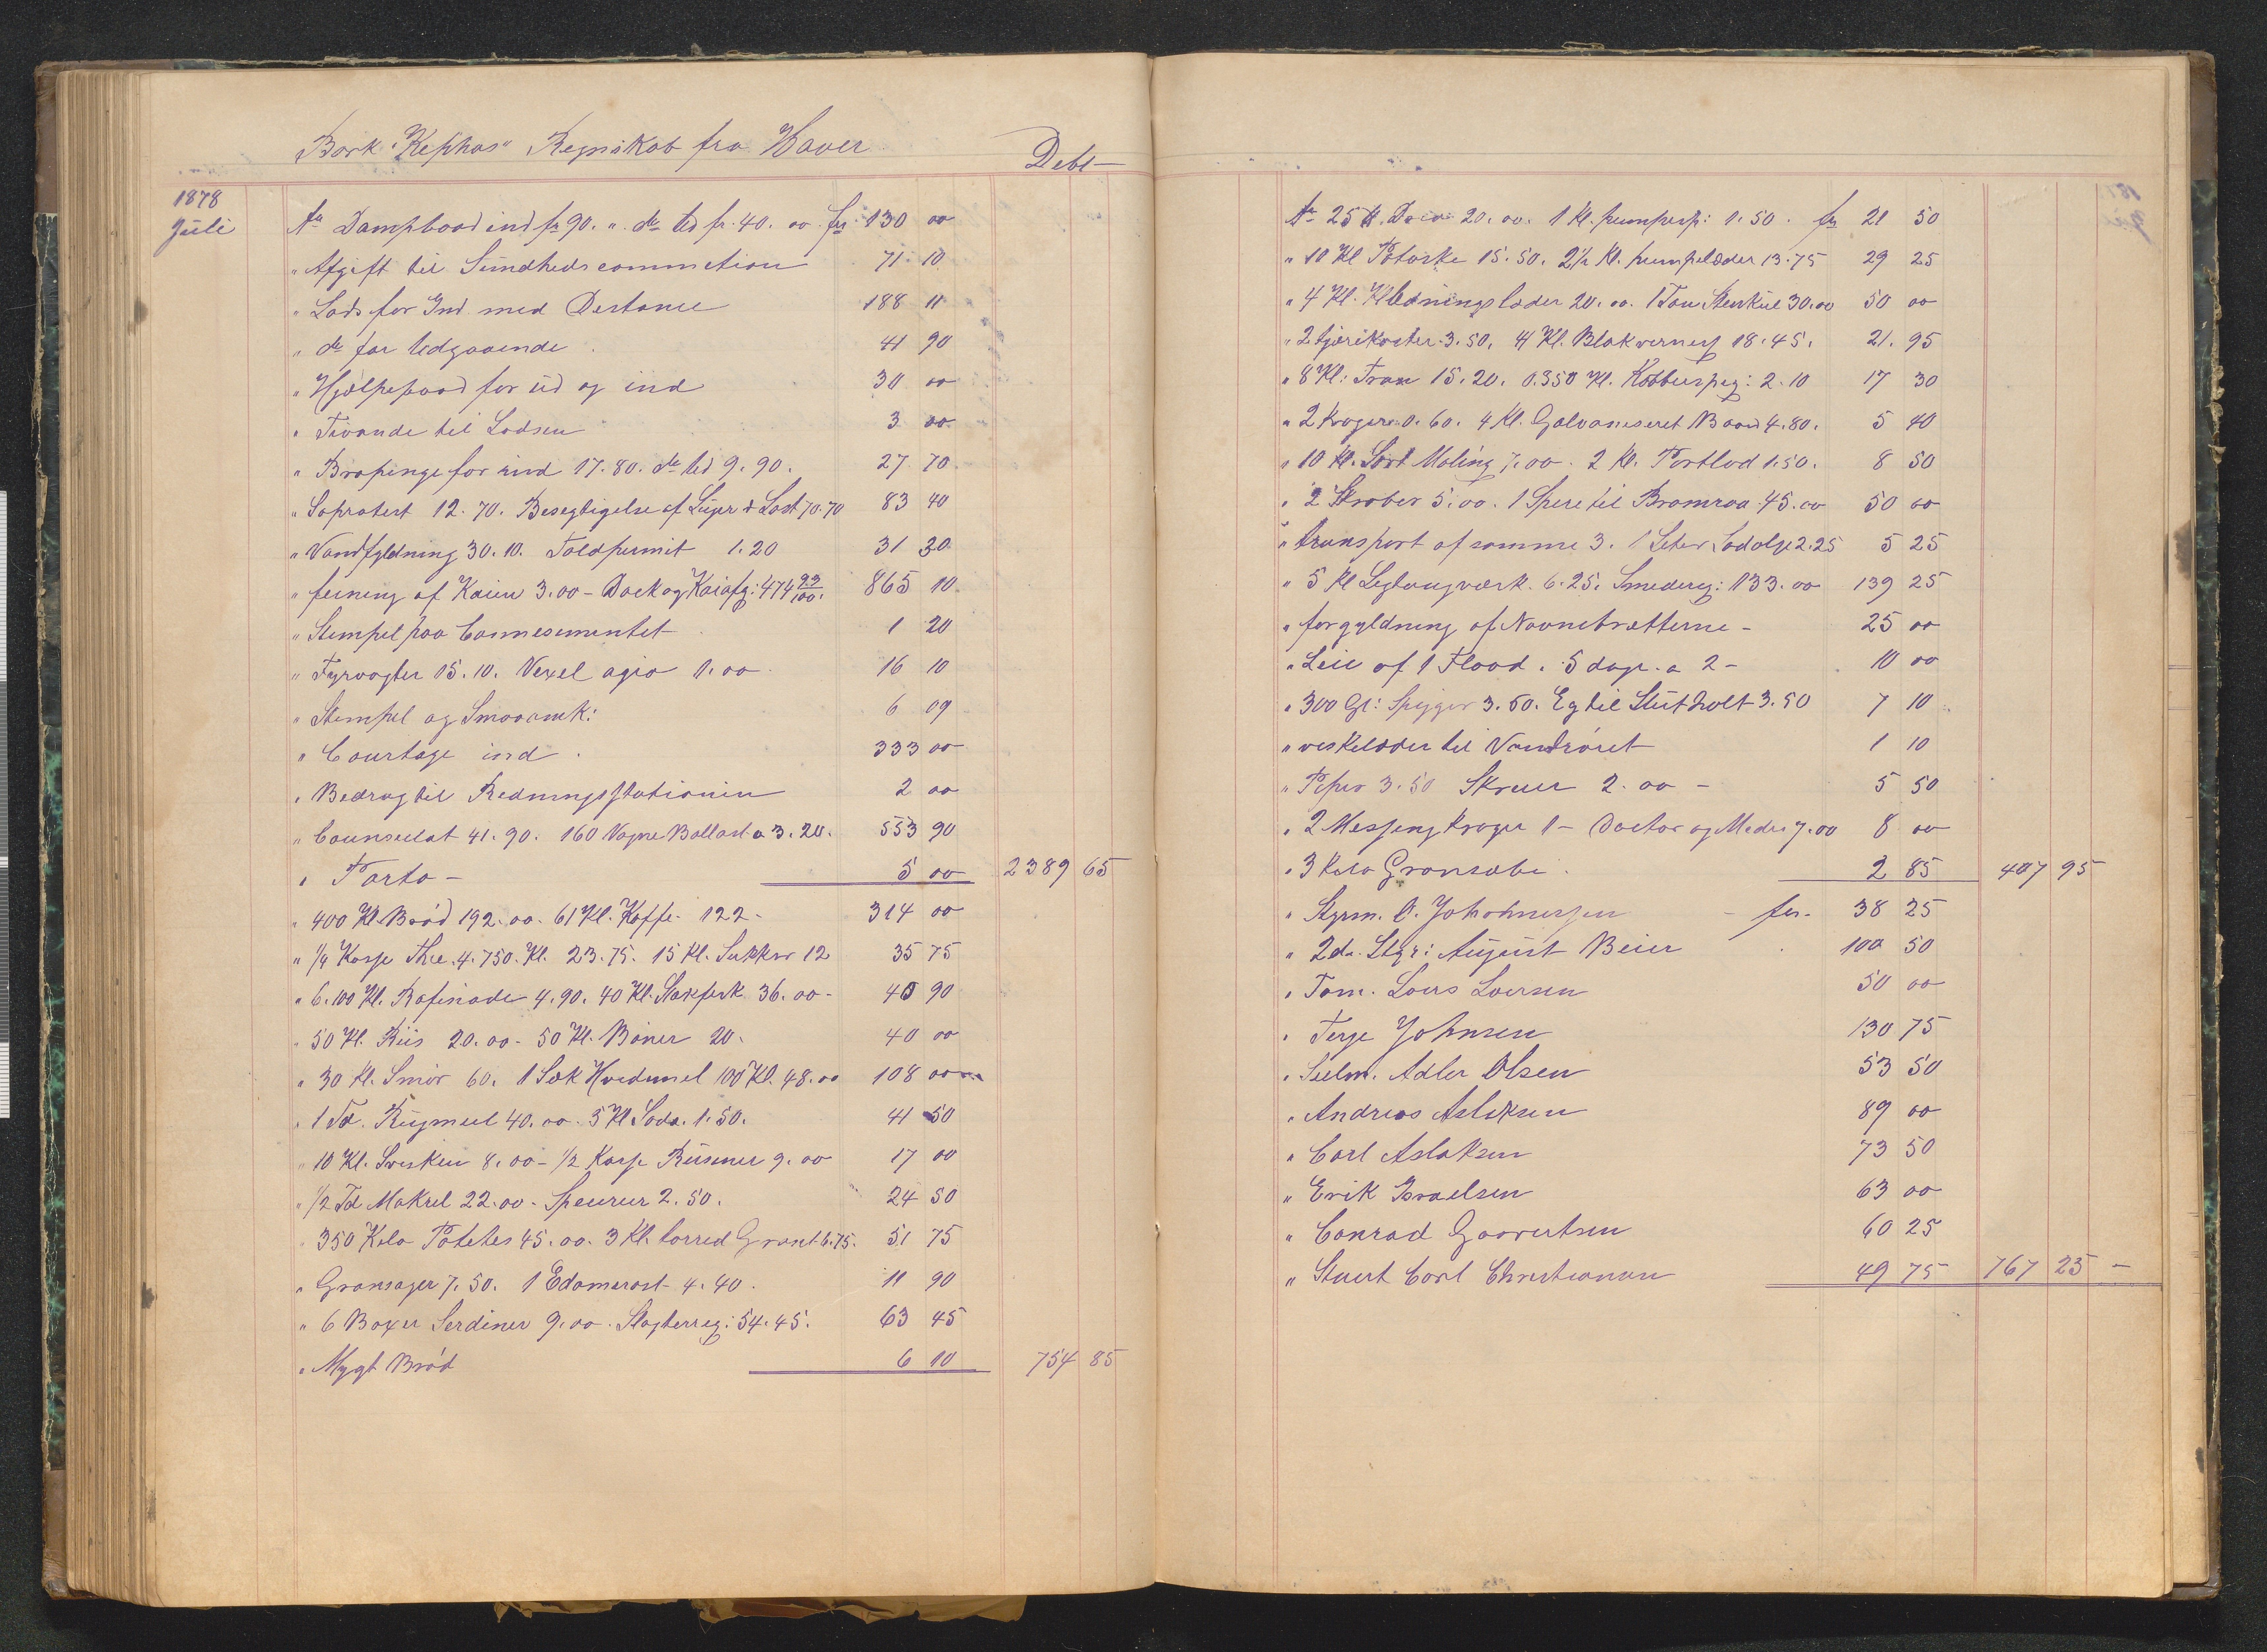 Bark "Kephas" Regnskab fra Haver
Debet
1878
Juli
An Dampbaad ind fr 90. " do Ud fr. 40. 00 frs 130 00
" Afgift til Sundhedscommetion 71 10
" Lods for Ind med Destance 188 11
" do for Udgaaende 41 90
" Hjælpebaad for ud og ind 30 00
" Tivande til Lodsen 3 00
" Bropenge for ind 17.80. do Ud 9.90. 27 70
" Søprotest 12.70. Besegtigelse af Luger & Last 70.70 83 40
" Vandfyldning 30.10. Toldpermit 1.20 31 30
" feining af Kaien 3.00 - Dock og Kaiafg: 474 99/100. 865 10
" Stempel paa Connesementet 1 20
" Fyrvogter 15.10. Vexel agio 1.00 16 10
" Stempel og Smaaomk: 6 09
" Courtage ind 333 00
" Bedrag til Redningsstationen 2 00
" Counsulat 41.90. 160 Vogne Ballast a 3.20. 553 90
" Porto - 5 00 2389 65
" 400 Kl. Brød 192.00. 61 Kl. Kaffe. 122 - 314 00
" 1/4 Kasse The. 4.750. Kl. 23.75. 15 Kl. Sukker 12 35 75
" 6.100 Kl. Rafinade 4.90. 40 Kl. Stokfisk 36.00 - 40 90
" 50 Kl. Riis 20.00 - 50 Kl. Bøner 20. 40 00
" 30 Kl. Smør 60. 1 Sæk Hvedemel 100 Kl. 48.00 108 00
" 1 Td. Rugmeel 40.00. 5 Kl Soda. 1.50. 41 50
" 10 Kl. Svesker 8.00 - 1/2 Kasse Rusiner 9.00 17 00
" 1/2 Td Makrel 22.00 - Speurier 2.50. 24 50
" 350 Kilo Potetes 45.00. 3 Kl. torred Grønt 6.75. 51 75
" Grønsager 7.50. 1 Edamerost 4.40. 11 90
" 6 Boxer Serdiner 9.00. Slagterreg: 54.45. 63 45
" Mygt Brød 6 10 754 85
An 25 Kl. 20.00. 1 Kl. pumpesp: 1.50. fr 21 50
" 10 Kl Potaske 15.50. 2 1/2 Kl. pumpelæder 13.75 29 25
" 4 Kl. Klædningslæder 20.00. 1 Ton Stenkul 30.00 50 00
" 2 tjærekoster 3.50. 4 Kl. Blakverness 18.45. 21. 95
" 8 Kl: Tran 15.20. 0.350 Kl. Kobberspig: 2.10 17 30
" 2 Kroger 0.60. 4 Kl. Galvaneseret Baand 4.80. 5 40
" 10 Kl. Sort Maling 7.00. 2 Kl. Portlod 1.50. 8 50
" 2 Skraber 5.00. 1 Spere til Bramraa 45.00 50 00
" transport af samme 3. 1 Leter Lodolje 2.25 5 25
" 5 Kl Legtougværk. 6.25. Smedereg: 133.00 139 25
" forgyldning af Navnebrætterne - 25 00
" Leie af 1 Flaad. 5 dage a 2 - 10 00
" 300 Gr: Spiger 3.50. Eg til Stutholt 3.50 7 10
" veskelæder til Vandrøret 1 10
" Piper 3.50 Skruer 2.00 - 5 50
" 2 Messing kroger 1 - Doctor og Medis 7.00 8 00
" 3 Kilo Grønsæbe 2 85 407 95
" Styrm. O. Johannessen - frs. 38 25
" 2dn Styr: August Beier 100 50
" Tøm. Lars Larsen 50 00
" Terje Johnsen 130 75
" Seilm. Adler Olsen 53 50
" Andreas Aslaksen 89 00
" Carl Aslaksen 73 50
" Erik Israelsen 63 00
" Conrad Goovertsen 60 25
" Stuert Carl Christiansen 49 75 767 25 -